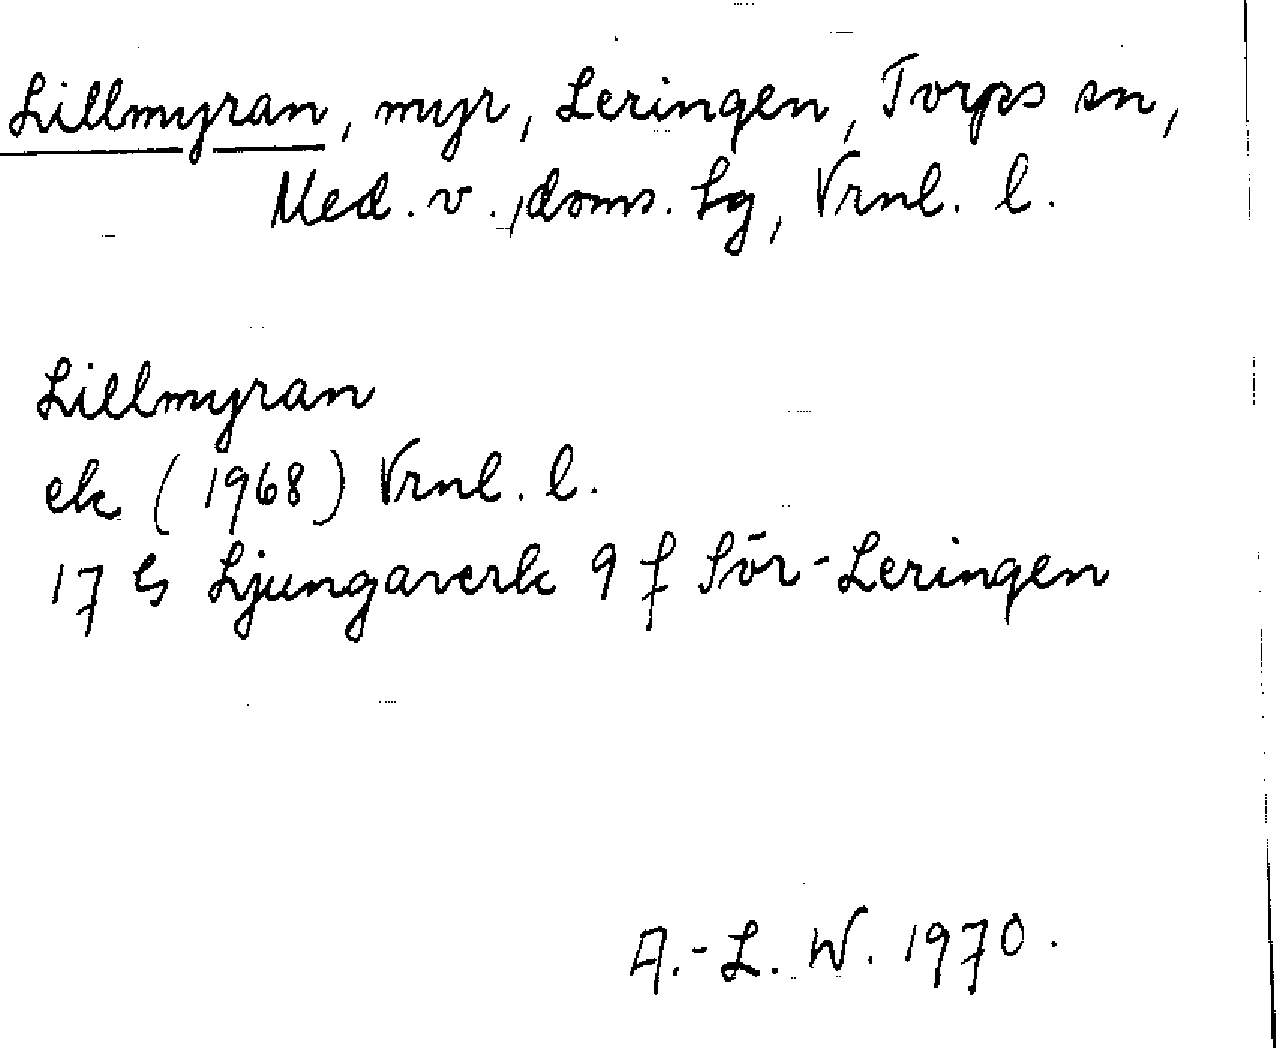 Lillmyran, myr, Leringen, Torps sn,
Med. v., doms. lg, Vrnl. l.
Lillmyran
ek (1968) Vrnl. l.
17 G Ljungaverk 9 f Sör-Leringen
A.-L. W. 1970.